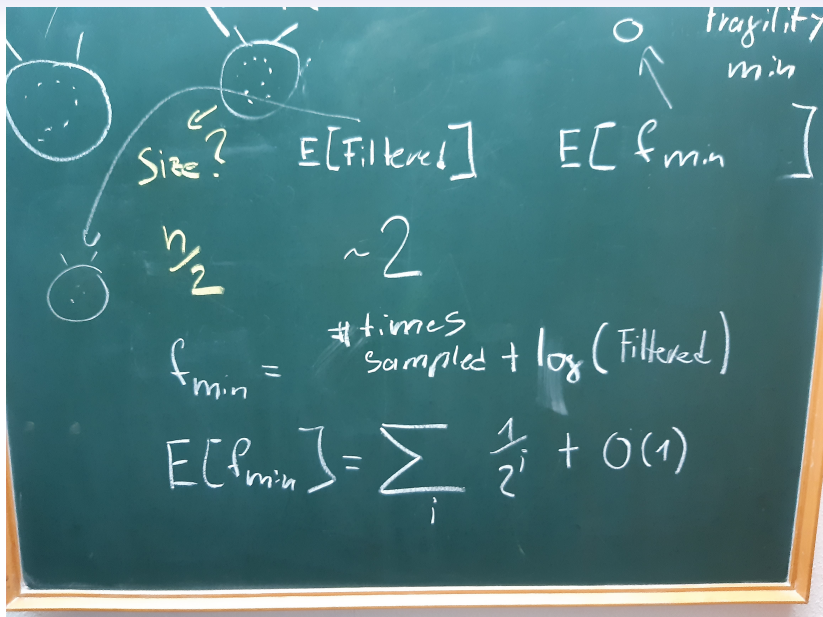 fragility
min
Size? E[Filtered] E[ f_min ]
n/2 ~2
f_min = # times sampled + log(Filtered)
E[f_min] = ∑_i 1/2^i + O(1)